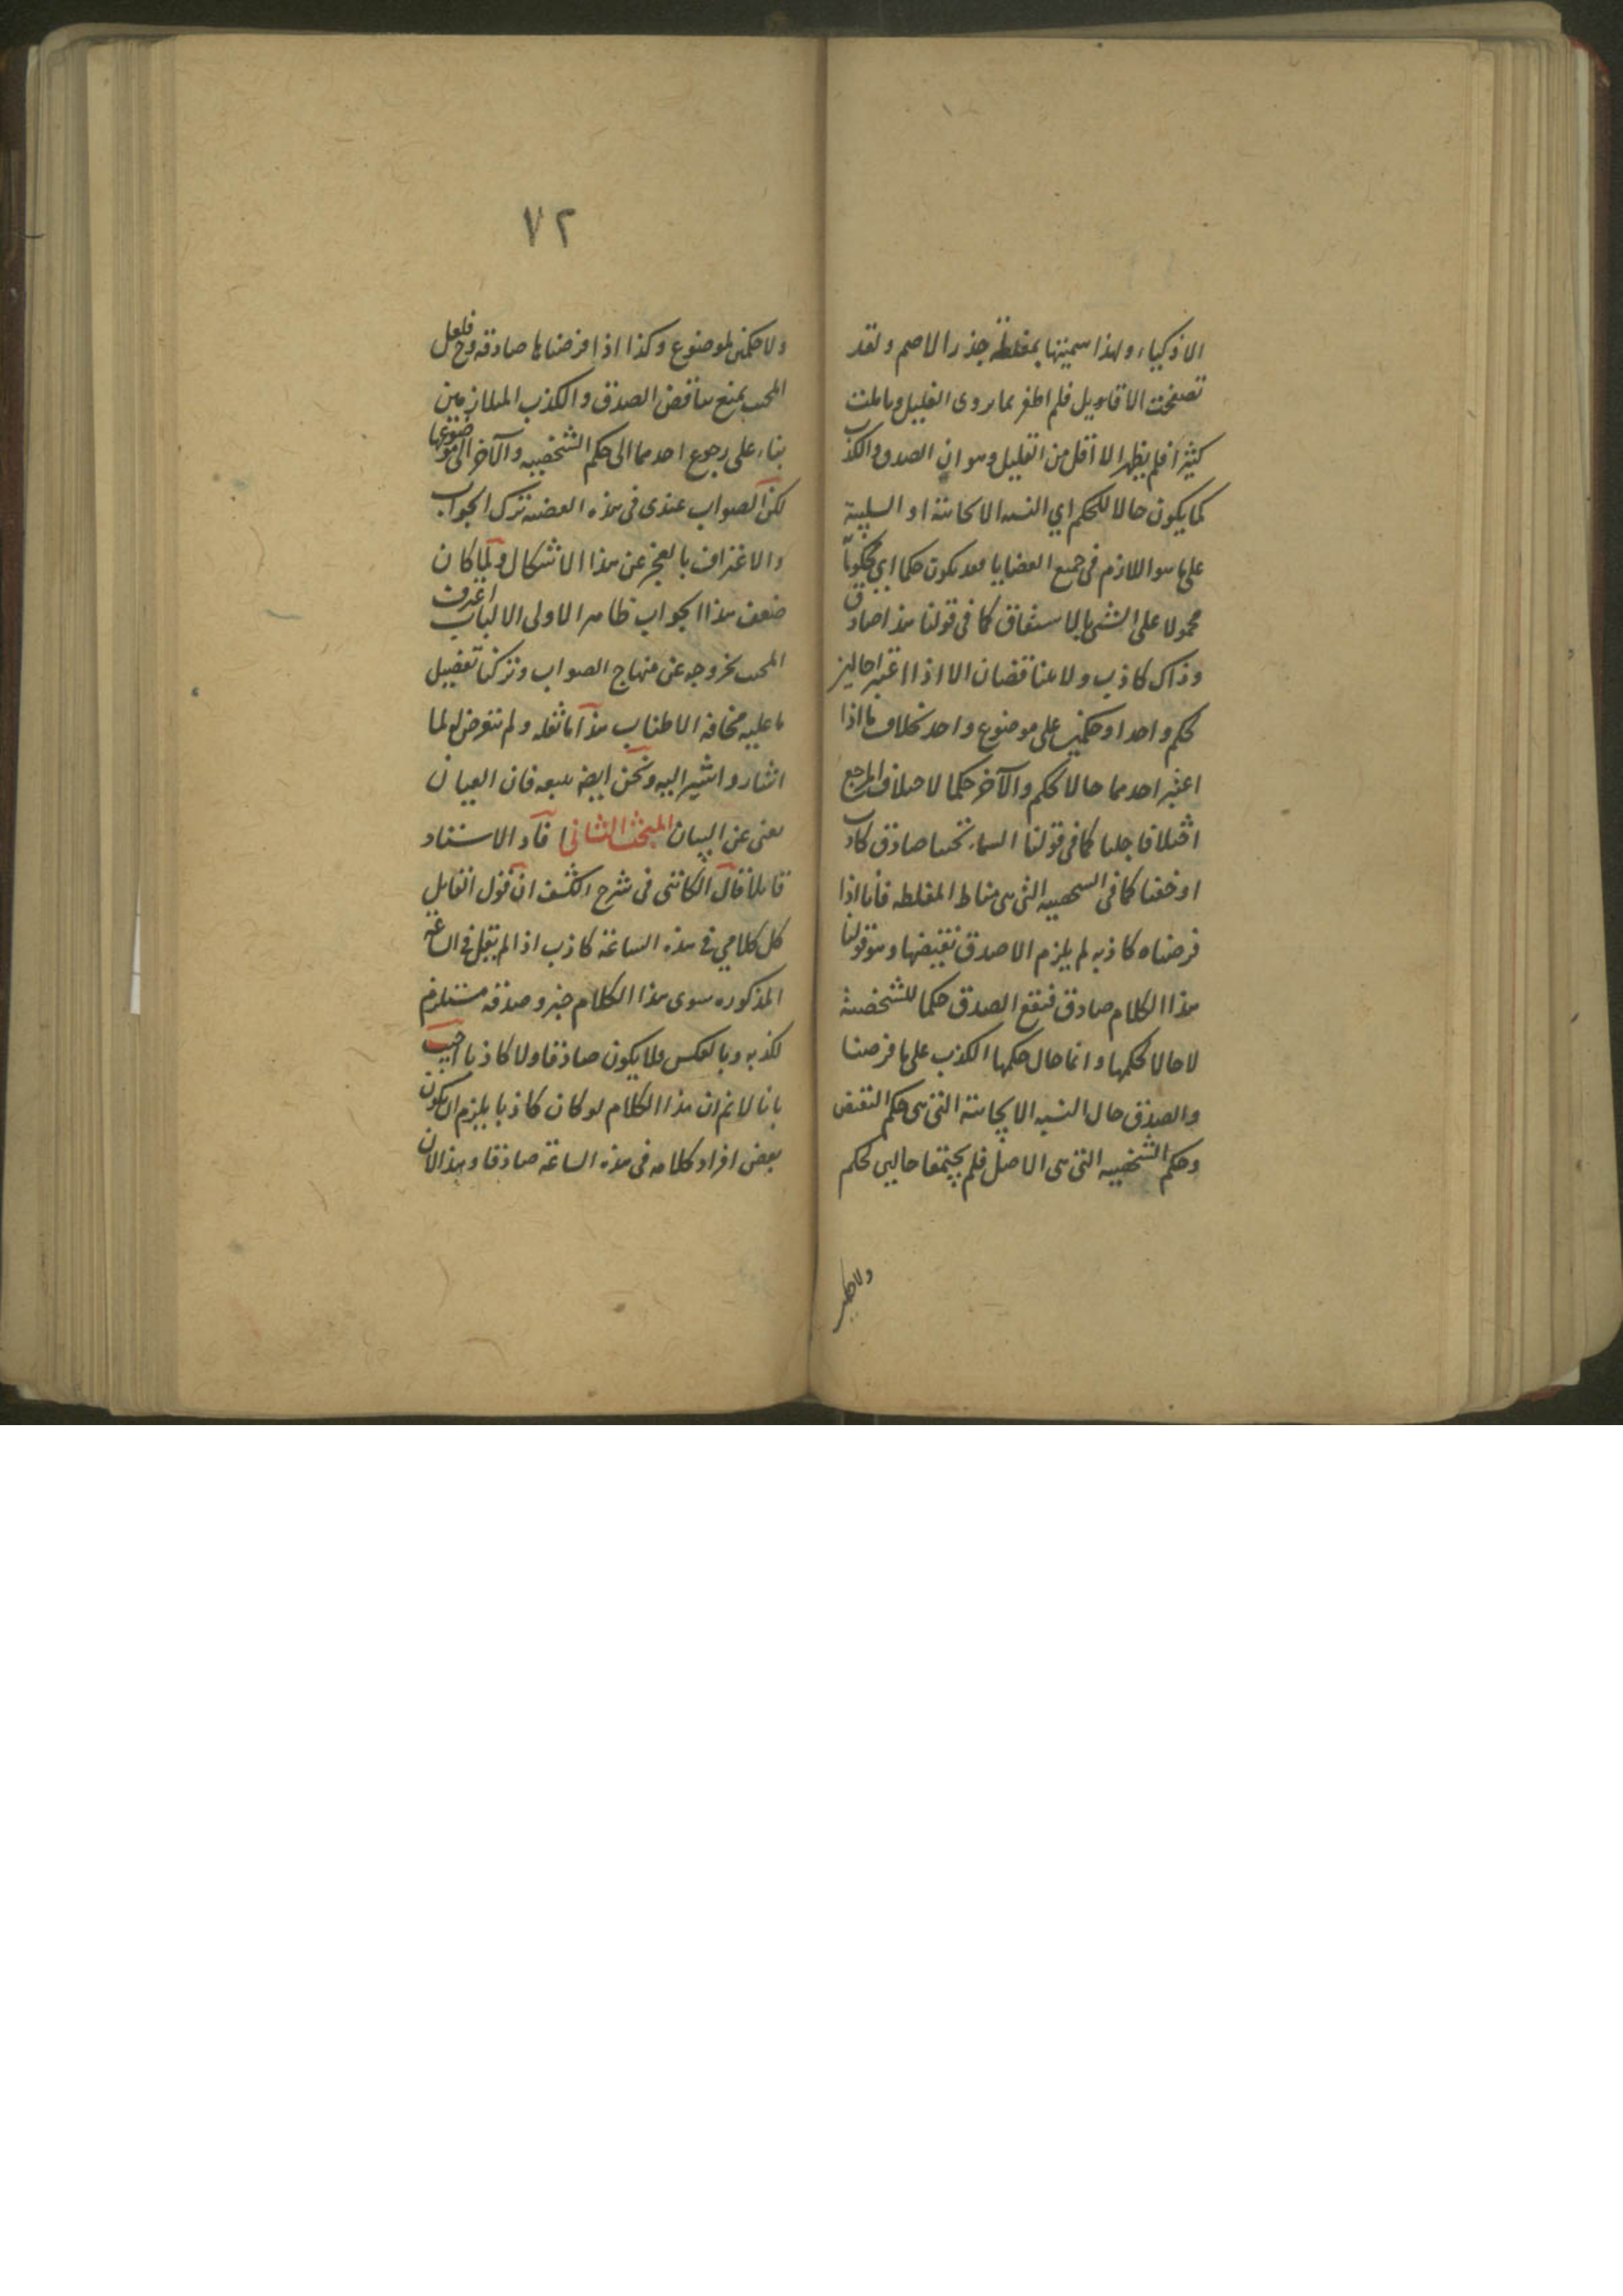 الاذكياء ولهذا سميتها بمغلطة جذر الاصم ولقد
تصفحت الاقاويل فلم اظفر بما يروى الغليل وتاملت
كثيرا فلم يظهر الا اقل من القليل وهو ان الصدق والكذب
كما يكون حالا للحكم اي النسبة الايجابية او السلبية
على ما هو اللازم في جميع القضايا فقد يكون حكما اي محكوما
محمولا على الشئ بالاشتقاق كما في قولنا هذا صادق
وذاك كاذب ولا يتناقضان الا اذا اعتبرا حالين
لحكم واحد او حكمين على موضوع واحد بخلاف ما اذا
اعتبر احدهما حالا للحكم والآخر حكما لاختلاف المرجع
اختلافا جليا كما في قولنا السماء تحتنا صادق كاذب
او خفيا كما في الشخصية التي هى مناط المغلطه فانا اذا
فرضناه كاذبه لم يلزم الا صدق نقيضها وهو قولنا
هذا الكلام صادق فيقع الصدق حكما للشخصية
لا حالا لحكمها وانما حال حكمها الكذب على ما فرضنا
والصدق حال النسبه الايجابية التي هى حكم النقيض
وحكم الشخصيه التي هى الاصل فلم يجتمعا حالين لحكم
ولا حكمين
٧٢
ولا حكمين لموضوع وكذا اذا فرضناها صادقه وح فلعل
المجيب يمنع تناقض الصدق والكذب المتلازمين
بناء على رجوع احدهما الى حكم الشخصيه والآخر الى موضوعها
لكن الصواب عندى في هذه القضيه ترك الجواب
والاعتراف بالعجز عن هذا الاشكال ولما كان
ضعف هذا الجواب ظاهرا لاولى الالباب اعترف
المجيب بخروجه عن منهاج الصواب وتركنا تفصيل
ما عليه مخافة الاطناب هذا ما نقله ولم نتعرض لما
اشار واشير اليه ونحن ايضه نتبعه فان العيان
يغنى عن البيان المبحث الثانى افاد الاستاد
قايلا قال الكاتبى في شرح الكشف ان قول القايل
كل كلامي في هذه الساعة كاذب اذا لم يقل في الساعة
المذكوره سوى هذا الكلام خبر وصدقه مستلزم
لكذبه وبالعكس فلا يكون صادقا ولا كاذبا اجيب
بانا لانم ان هذا الكلام لو كان كاذبا يلزم ان يكون
بعض افراد كلامه في هذه الساعة صادقا وهذا لان